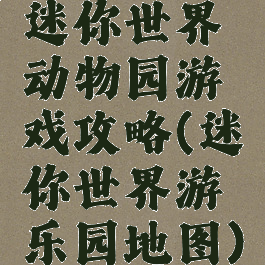 迷你世界
动物园游
戏攻略(迷
你世界游
乐园地图)